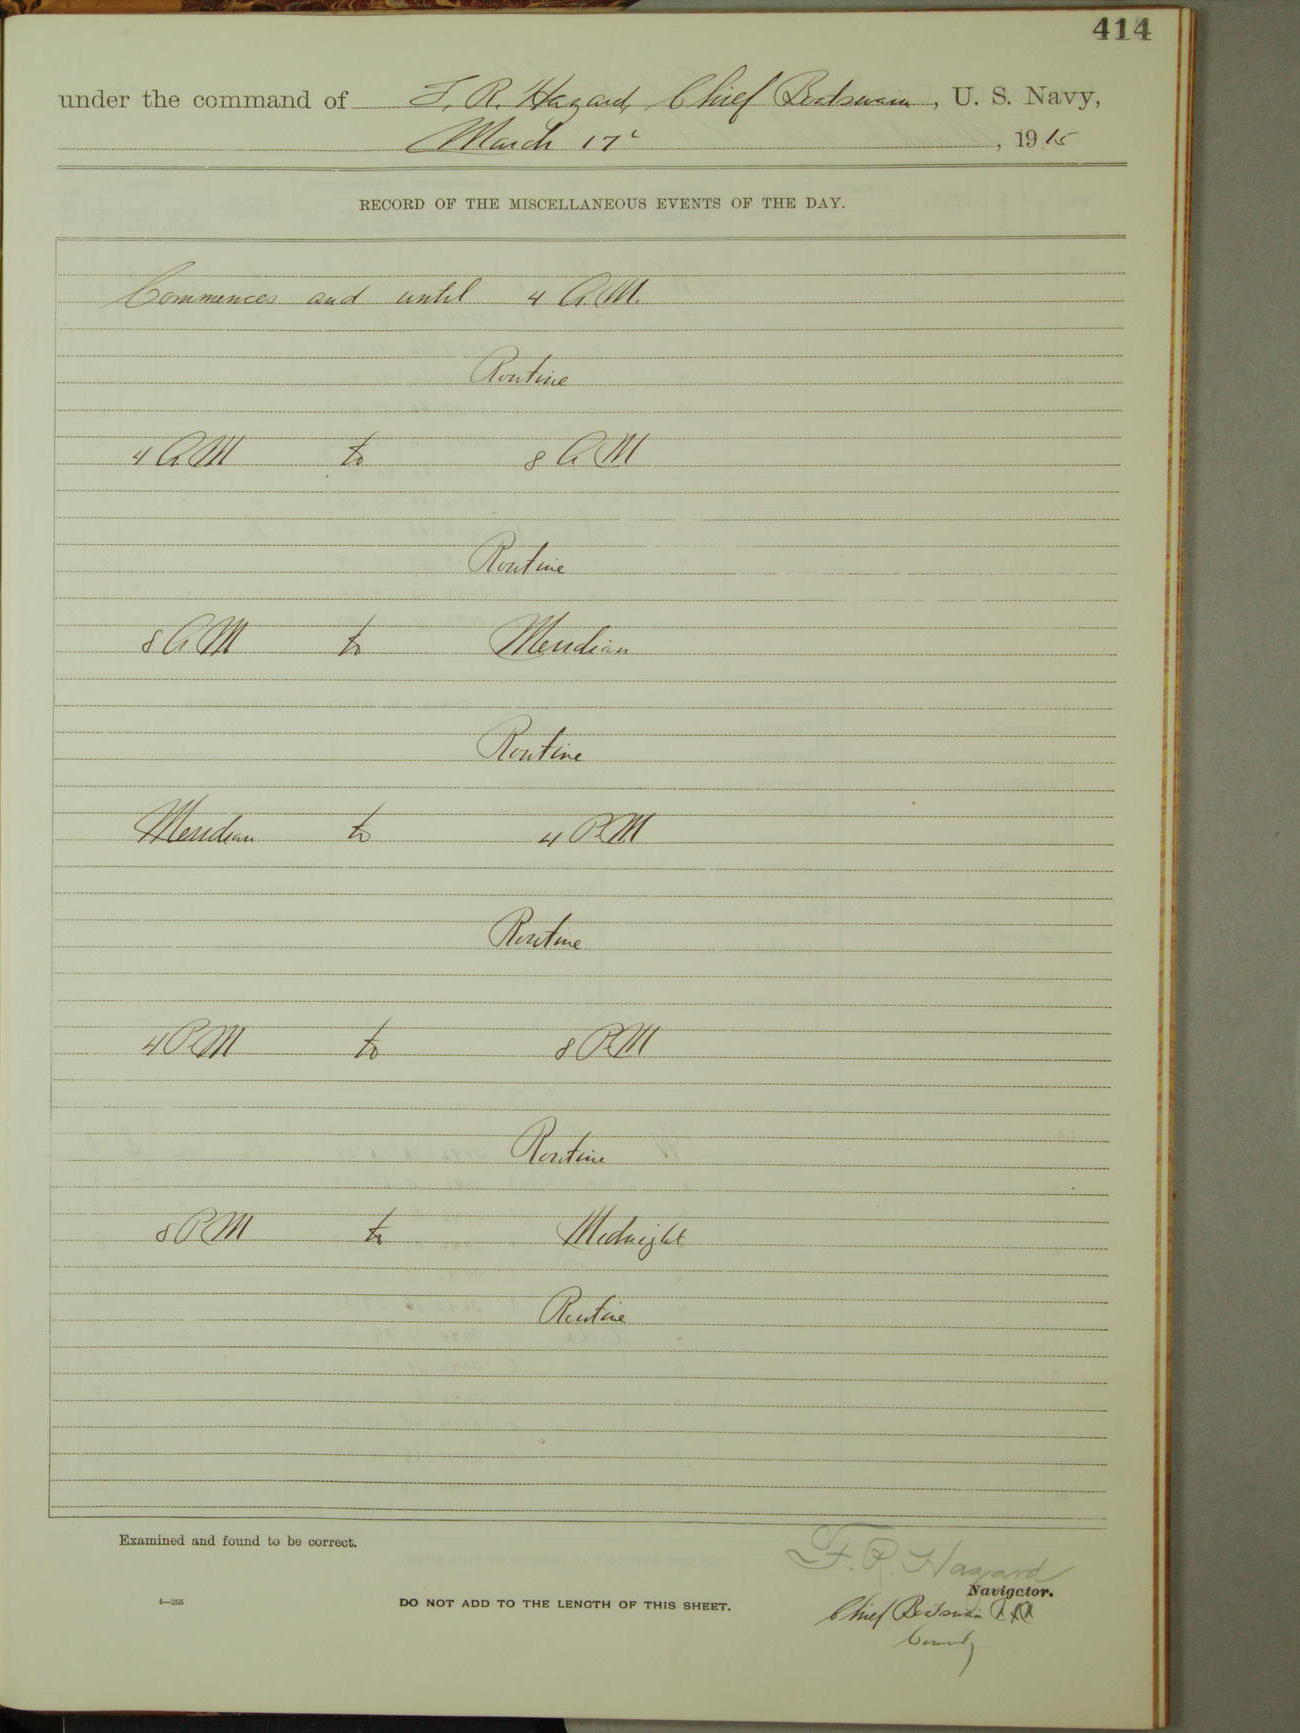 414
under the command of F. R. Hazard, Chief Boatswain, U. S. Navy,
March 17, 1915
RECORD OF THE MISCELLANEOUS EVENTS OF THE DAY.
Commences and until 4 A.M.
Routine
4 A.M to 8 A.M
Routine
8 A.M to Meridian
Routine
Meridian to 4 P.M
Routine
4 P.M to 8 P.M
Routine
8 P.M to Midnight
Routine
Examined and found to be correct.
F. R. Hazard
Navigator.
4—265
DO NOT ADD TO THE LENGTH OF THIS SHEET.
Chief Boatswain